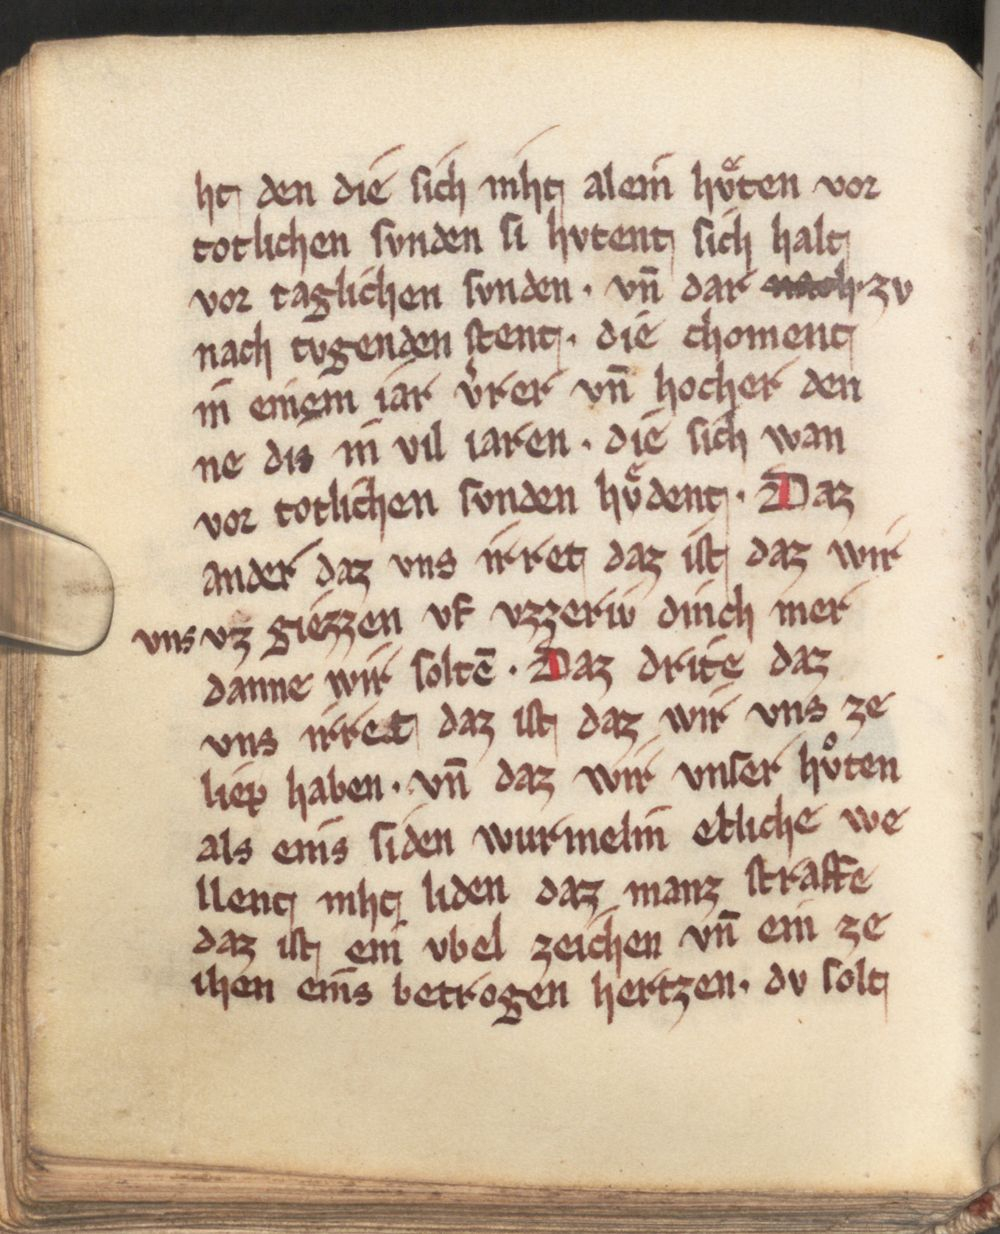 ht den die sich niht alein hvͤten vor
totlichen svnden si hvtent sich halt
vor taglichen svnden · vn̄ dar nach zv
nach tvgenden stent · die choment
in einem iar vͤrer vn̄ hocher den
ne dis in vil iaren · die sich wan
vor totlichen svnden hvͤdent · Daz
ander daz vns irret daz ist daz wir
vns vz giezzen vf vzzeriv dinch mer
danne wir soltē · Daz drite daz
vns irret daz ist daz wir vns ze
liep haben · vn̄ daz wir vnser hvͦten
als eins siden wurmelin etliche we
llent niht liden daz manz straffe
daz ist ein vbel zeichen vn̄ ein ze
ihen eins betrogen hertzen · dv solt